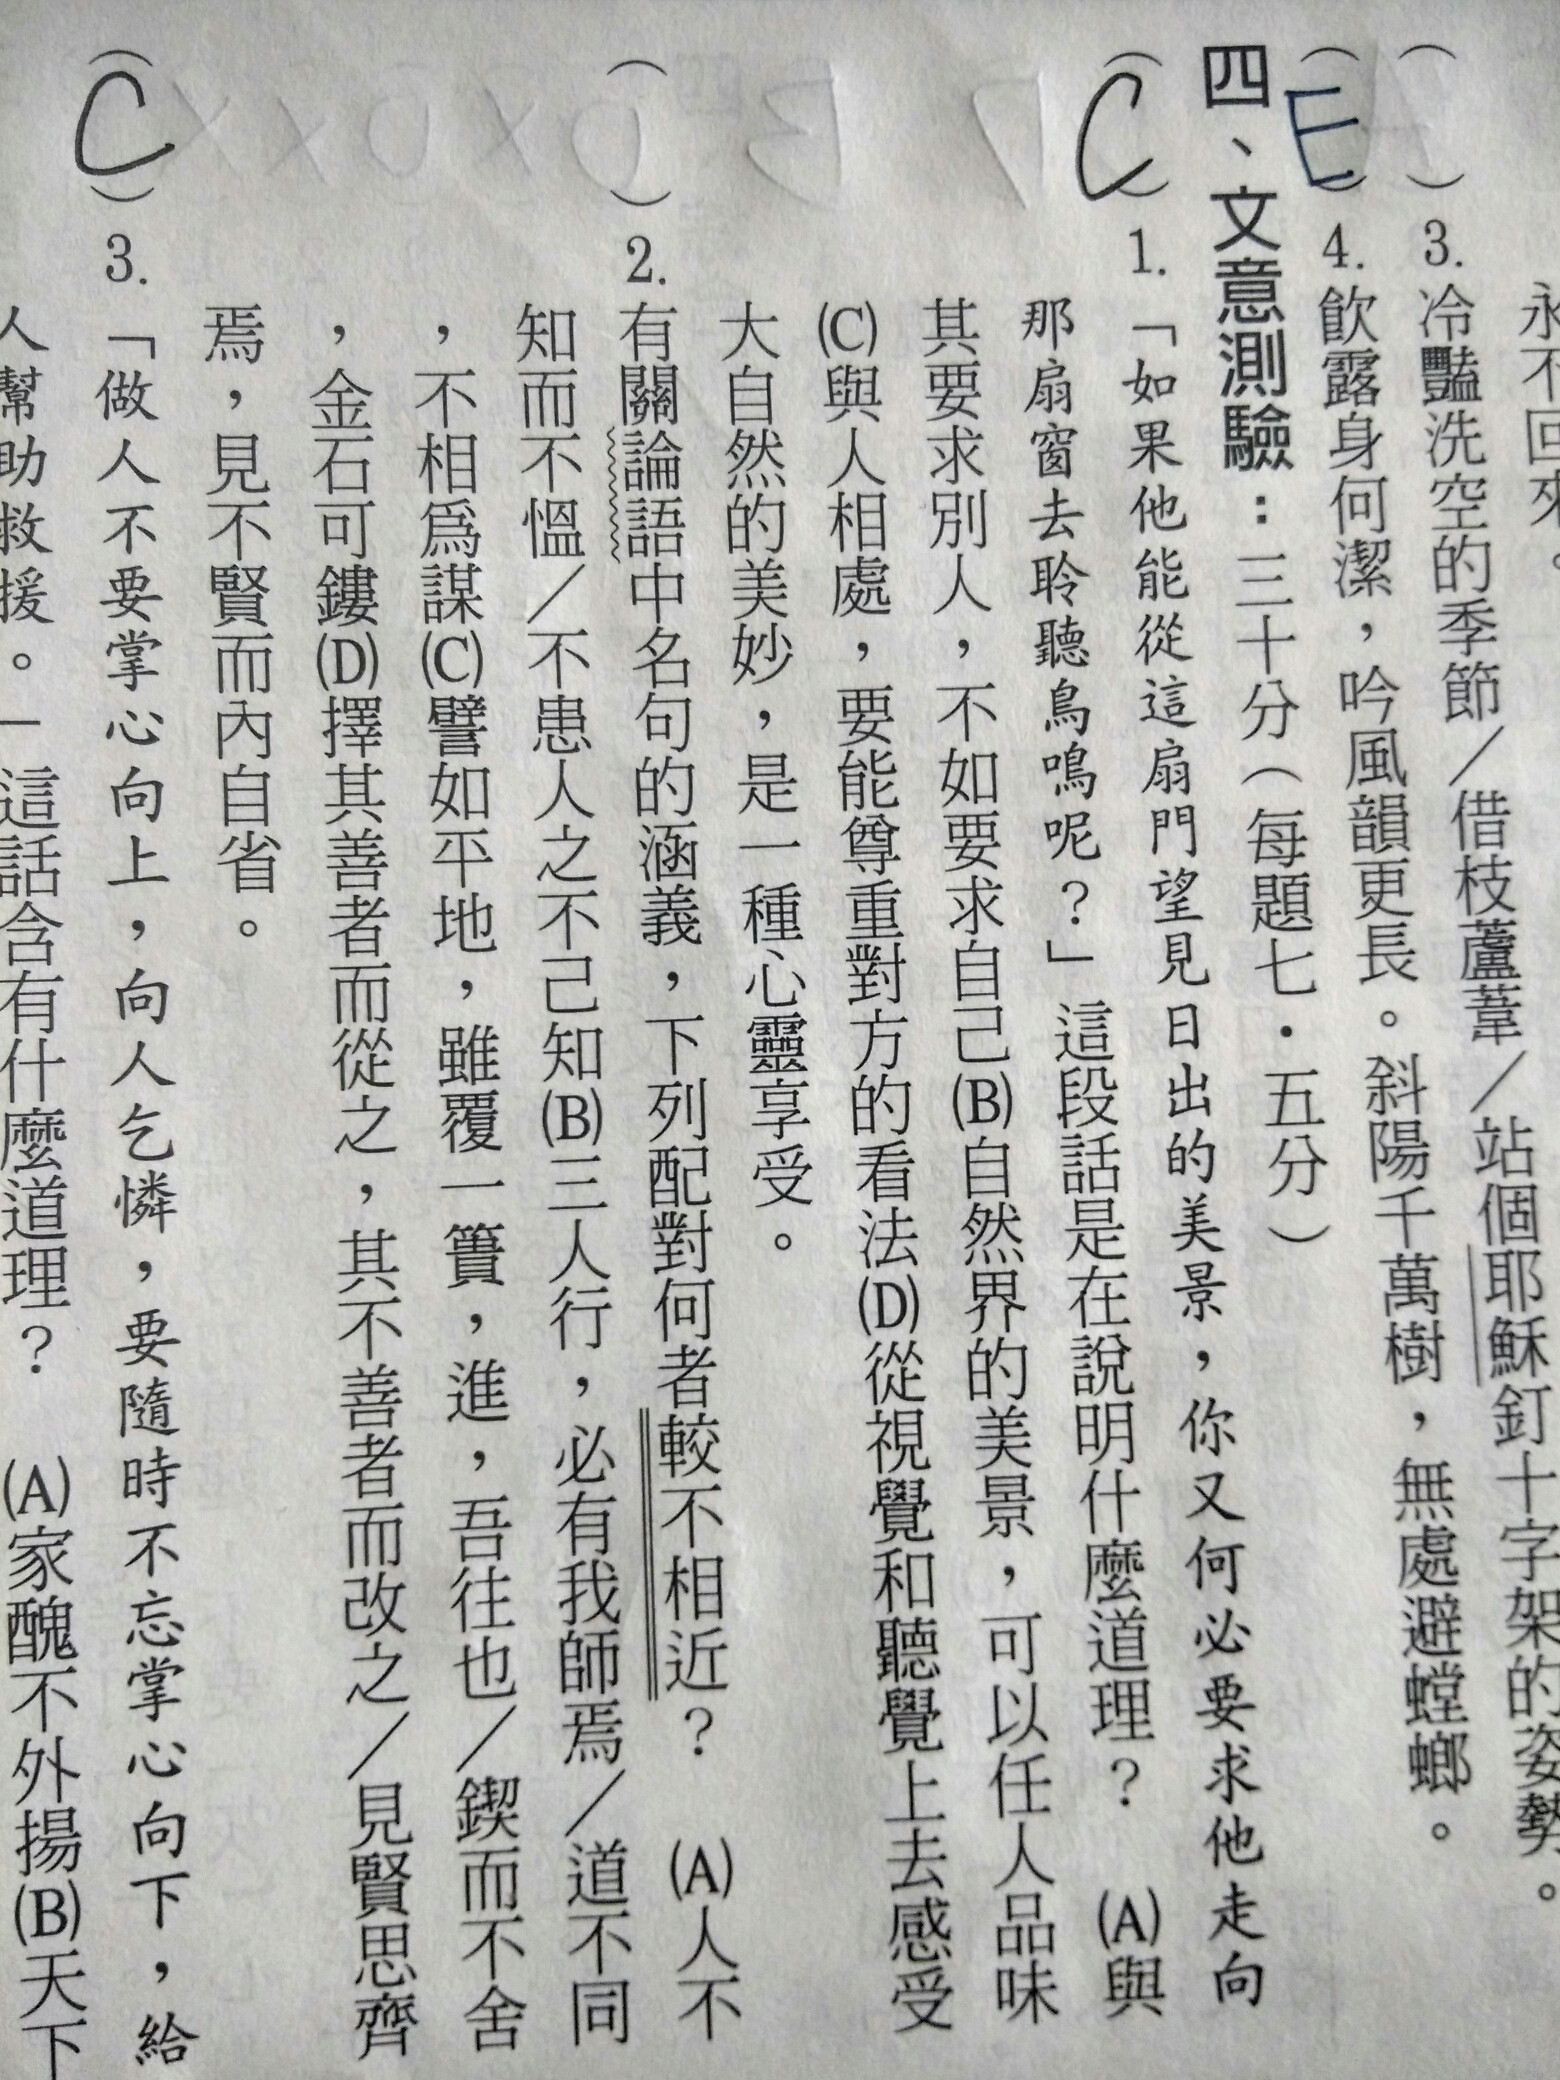 永不回來。
3.冷豔洗空的季節／借枝蘆葦／站個耶穌釘十字架的姿勢。
(E)4.飲露身何潔，吟風韻更長。斜陽千萬樹，無處避螳螂。
四、文意測驗：三十分（每題七．五分）
(C)1.「如果他能從這扇門望見日出的美景，你又何必要求他走向
那扇窗去聆聽鳥鳴呢？」這段話是在說明什麼道理？　(A)與
其要求別人，不如要求自己(B)自然界的美景，可以任人品味
(C)與人相處，要能尊重對方的看法(D)從視覺和聽覺上去感受
大自然的美妙，是一種心靈享受。
(　)2.有關論語中名句的涵義，下列配對何者較不相近？　(A)人不
知而不慍／不患人之不己知(B)三人行，必有我師焉／道不同
，不相為謀(C)譬如平地，雖覆一簣，進，吾往也／鍥而不舍
，金石可鏤(D)擇其善者而從之，其不善者而改之／見賢思齊
焉，見不賢而內自省。
(C)3.「做人不要掌心向上，向人乞憐，要隨時不忘掌心向下，給
人幫助救援。」這話含有什麼道理？　(A)家醜不外揚(B)天下